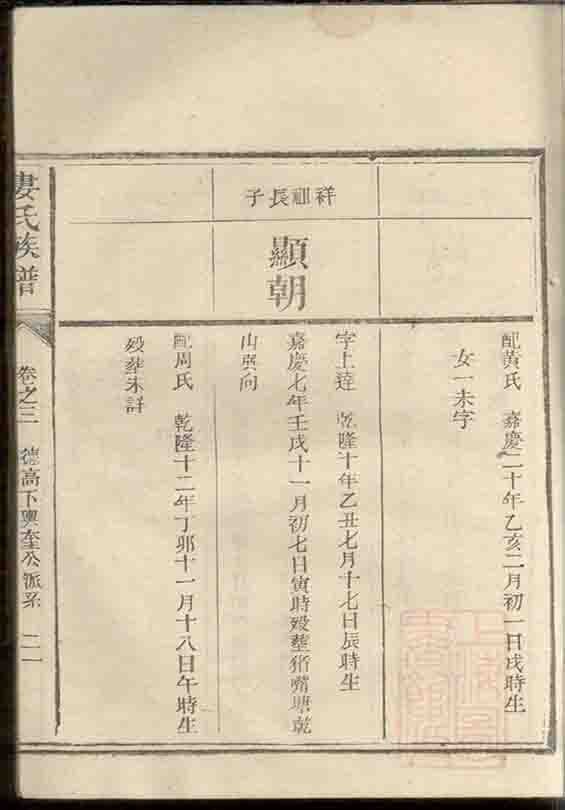 配黃氏 嘉慶二十年乙亥二月初一日戌時生
女一未字
祥祖長子
顯朝
字上達 乾隆十年乙丑七月十七日辰時生
嘉慶七年壬戌十一月初七日寅時歿塟猪嘴塘乾
山巽向
配周氏 乾隆十二年丁卯十一月十八日午時生
歿葬未詳
婁氏族譜
卷之三 德高下興奎公派系 二一